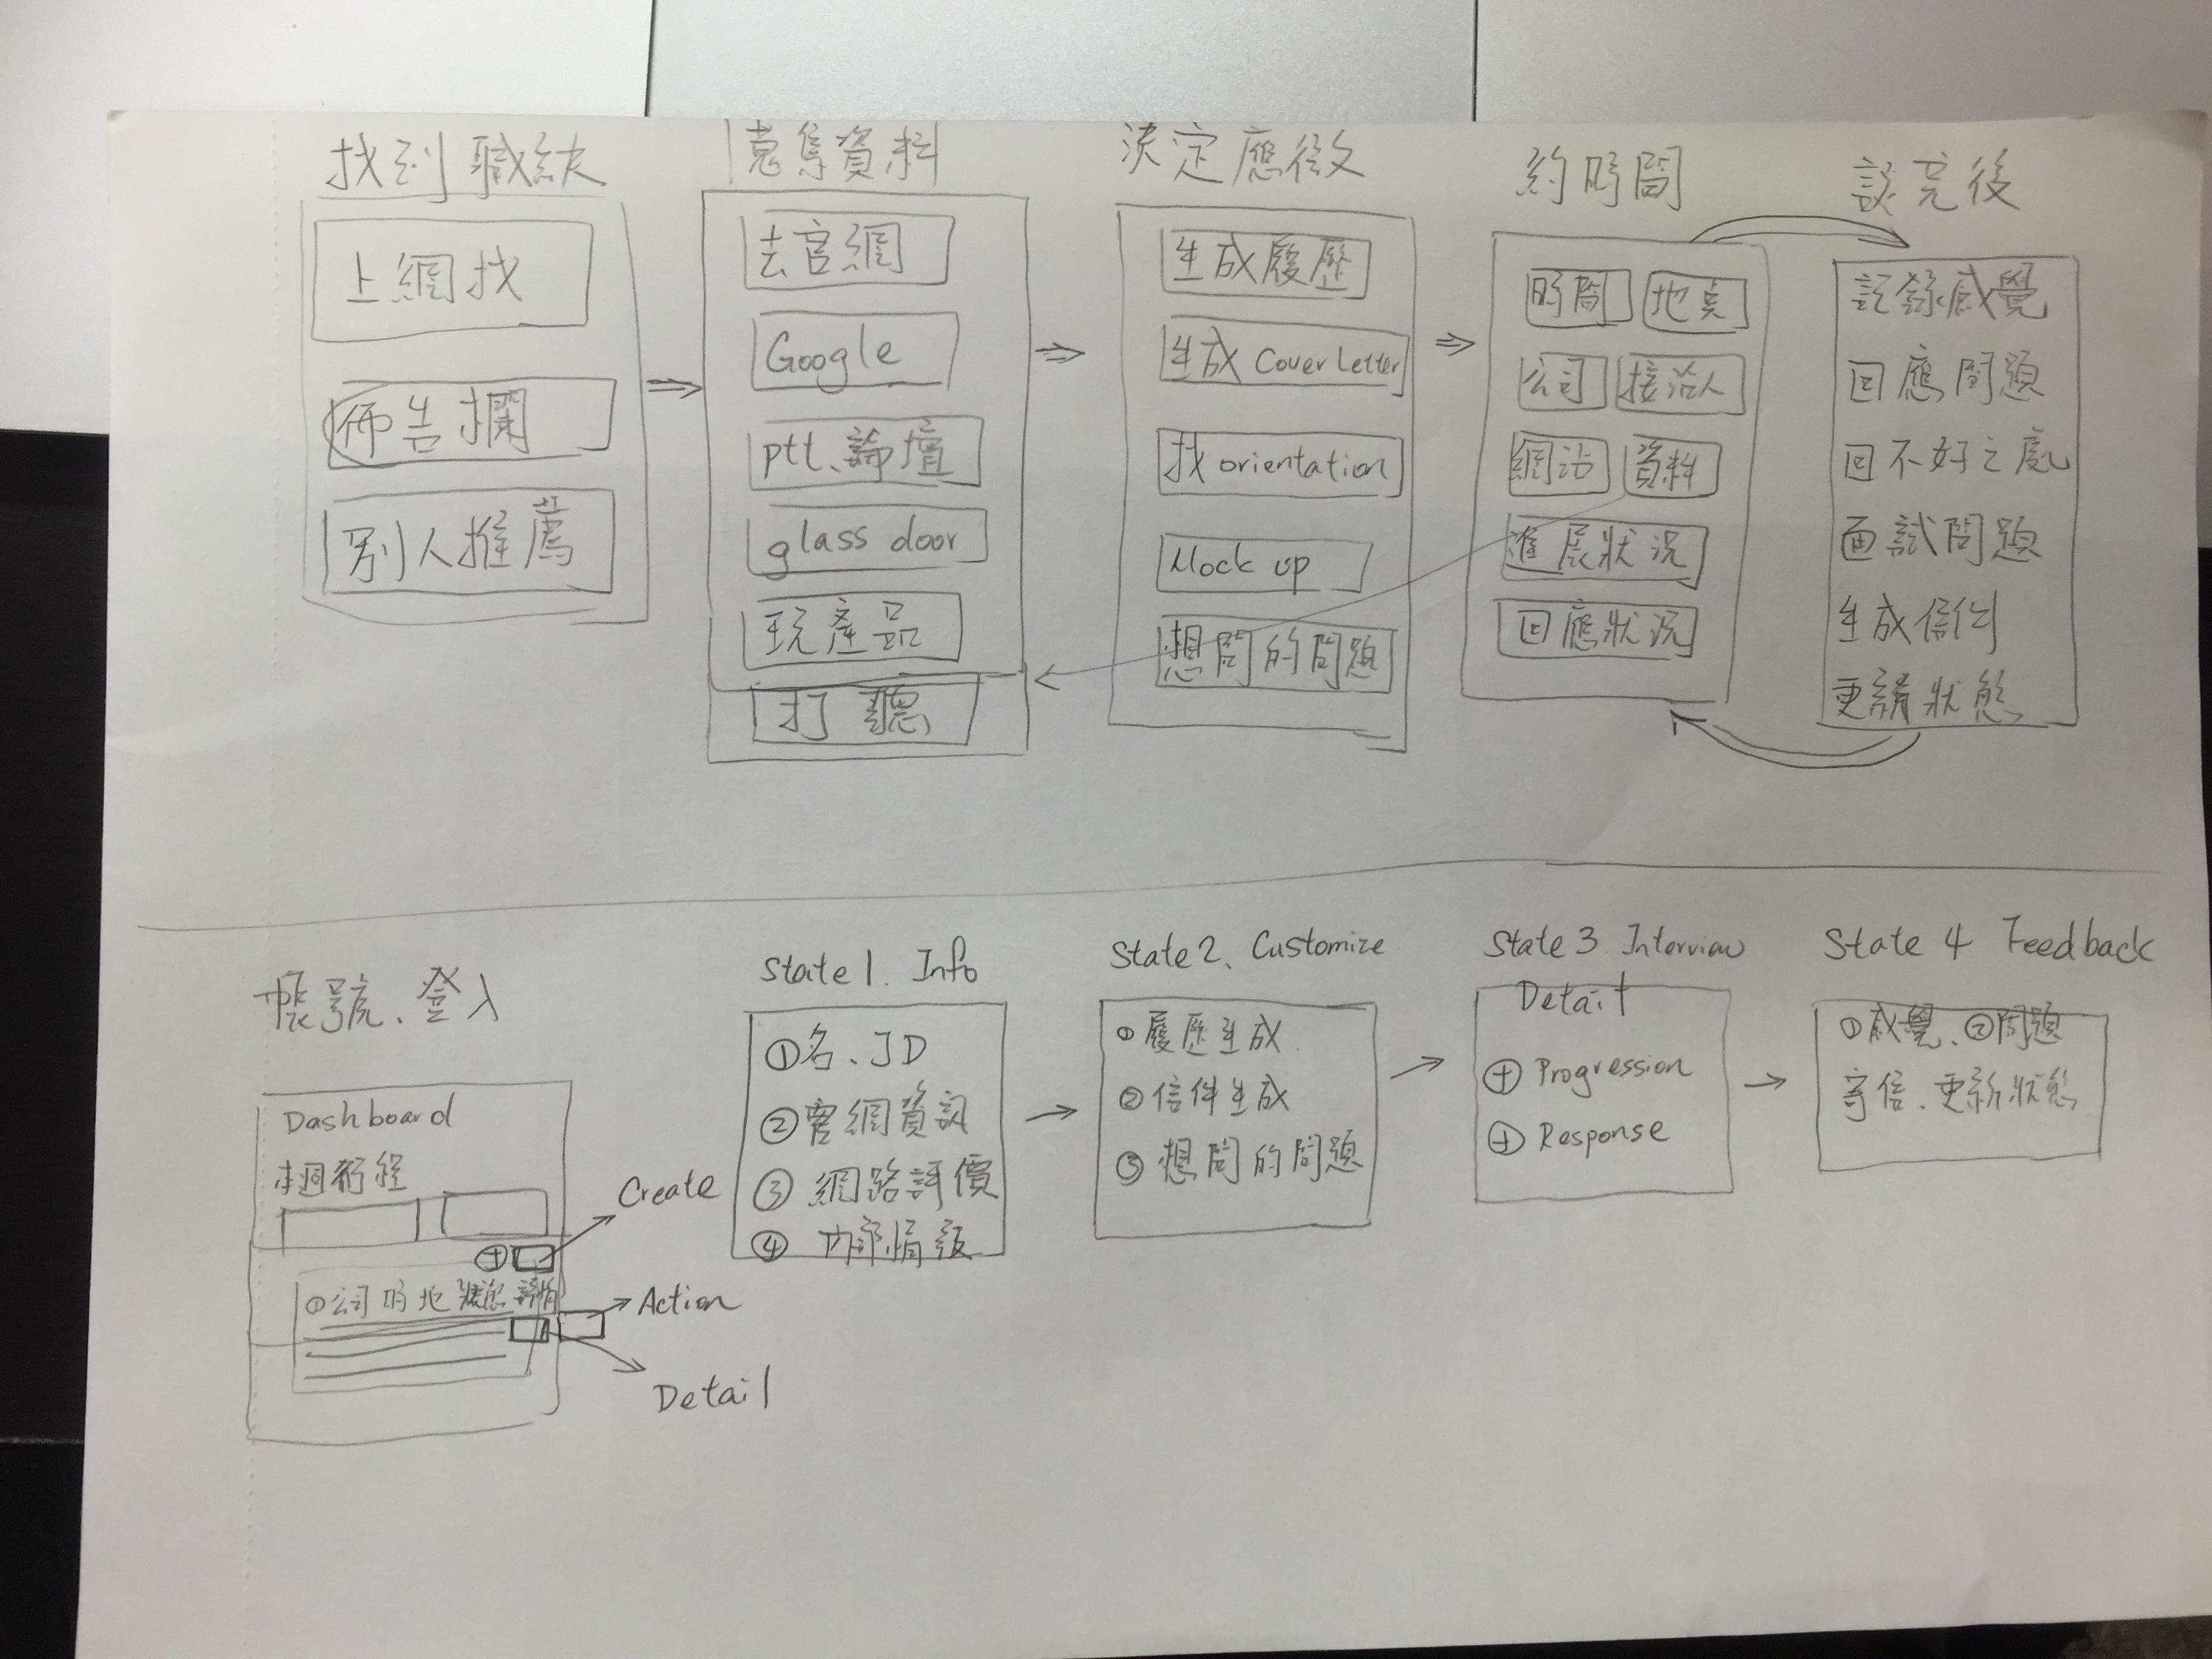 找到職缺
上網找
佈告欄
別人推薦
蒐集資料
去官網
Google
ptt、論壇
glass door
玩產品
打聽
決定應徵
生成履歷
生成 Cover Letter
找 orientation
Mock up
想問的問題
約時間
時間 地點
公司 接洽人
網站 資料
進展狀況
回應狀況
談完後
記錄感覺
回應問題
回不好之處
面試問題
生成信件
更新狀態
帳號、登入
Dashboard
本週行程
Create
①公司 時 地 狀態 詳情
Action
Detail
State 1. Info
①名、JD
②官網資訊
③網路評價
④內部情報
State 2、Customize
①履歷生成
②信件生成
③想問的問題
State 3 Interview
Detail
⊕ Progression
⊕ Response
State 4 Feedback
①感覺、②問題
寄信、更新狀態